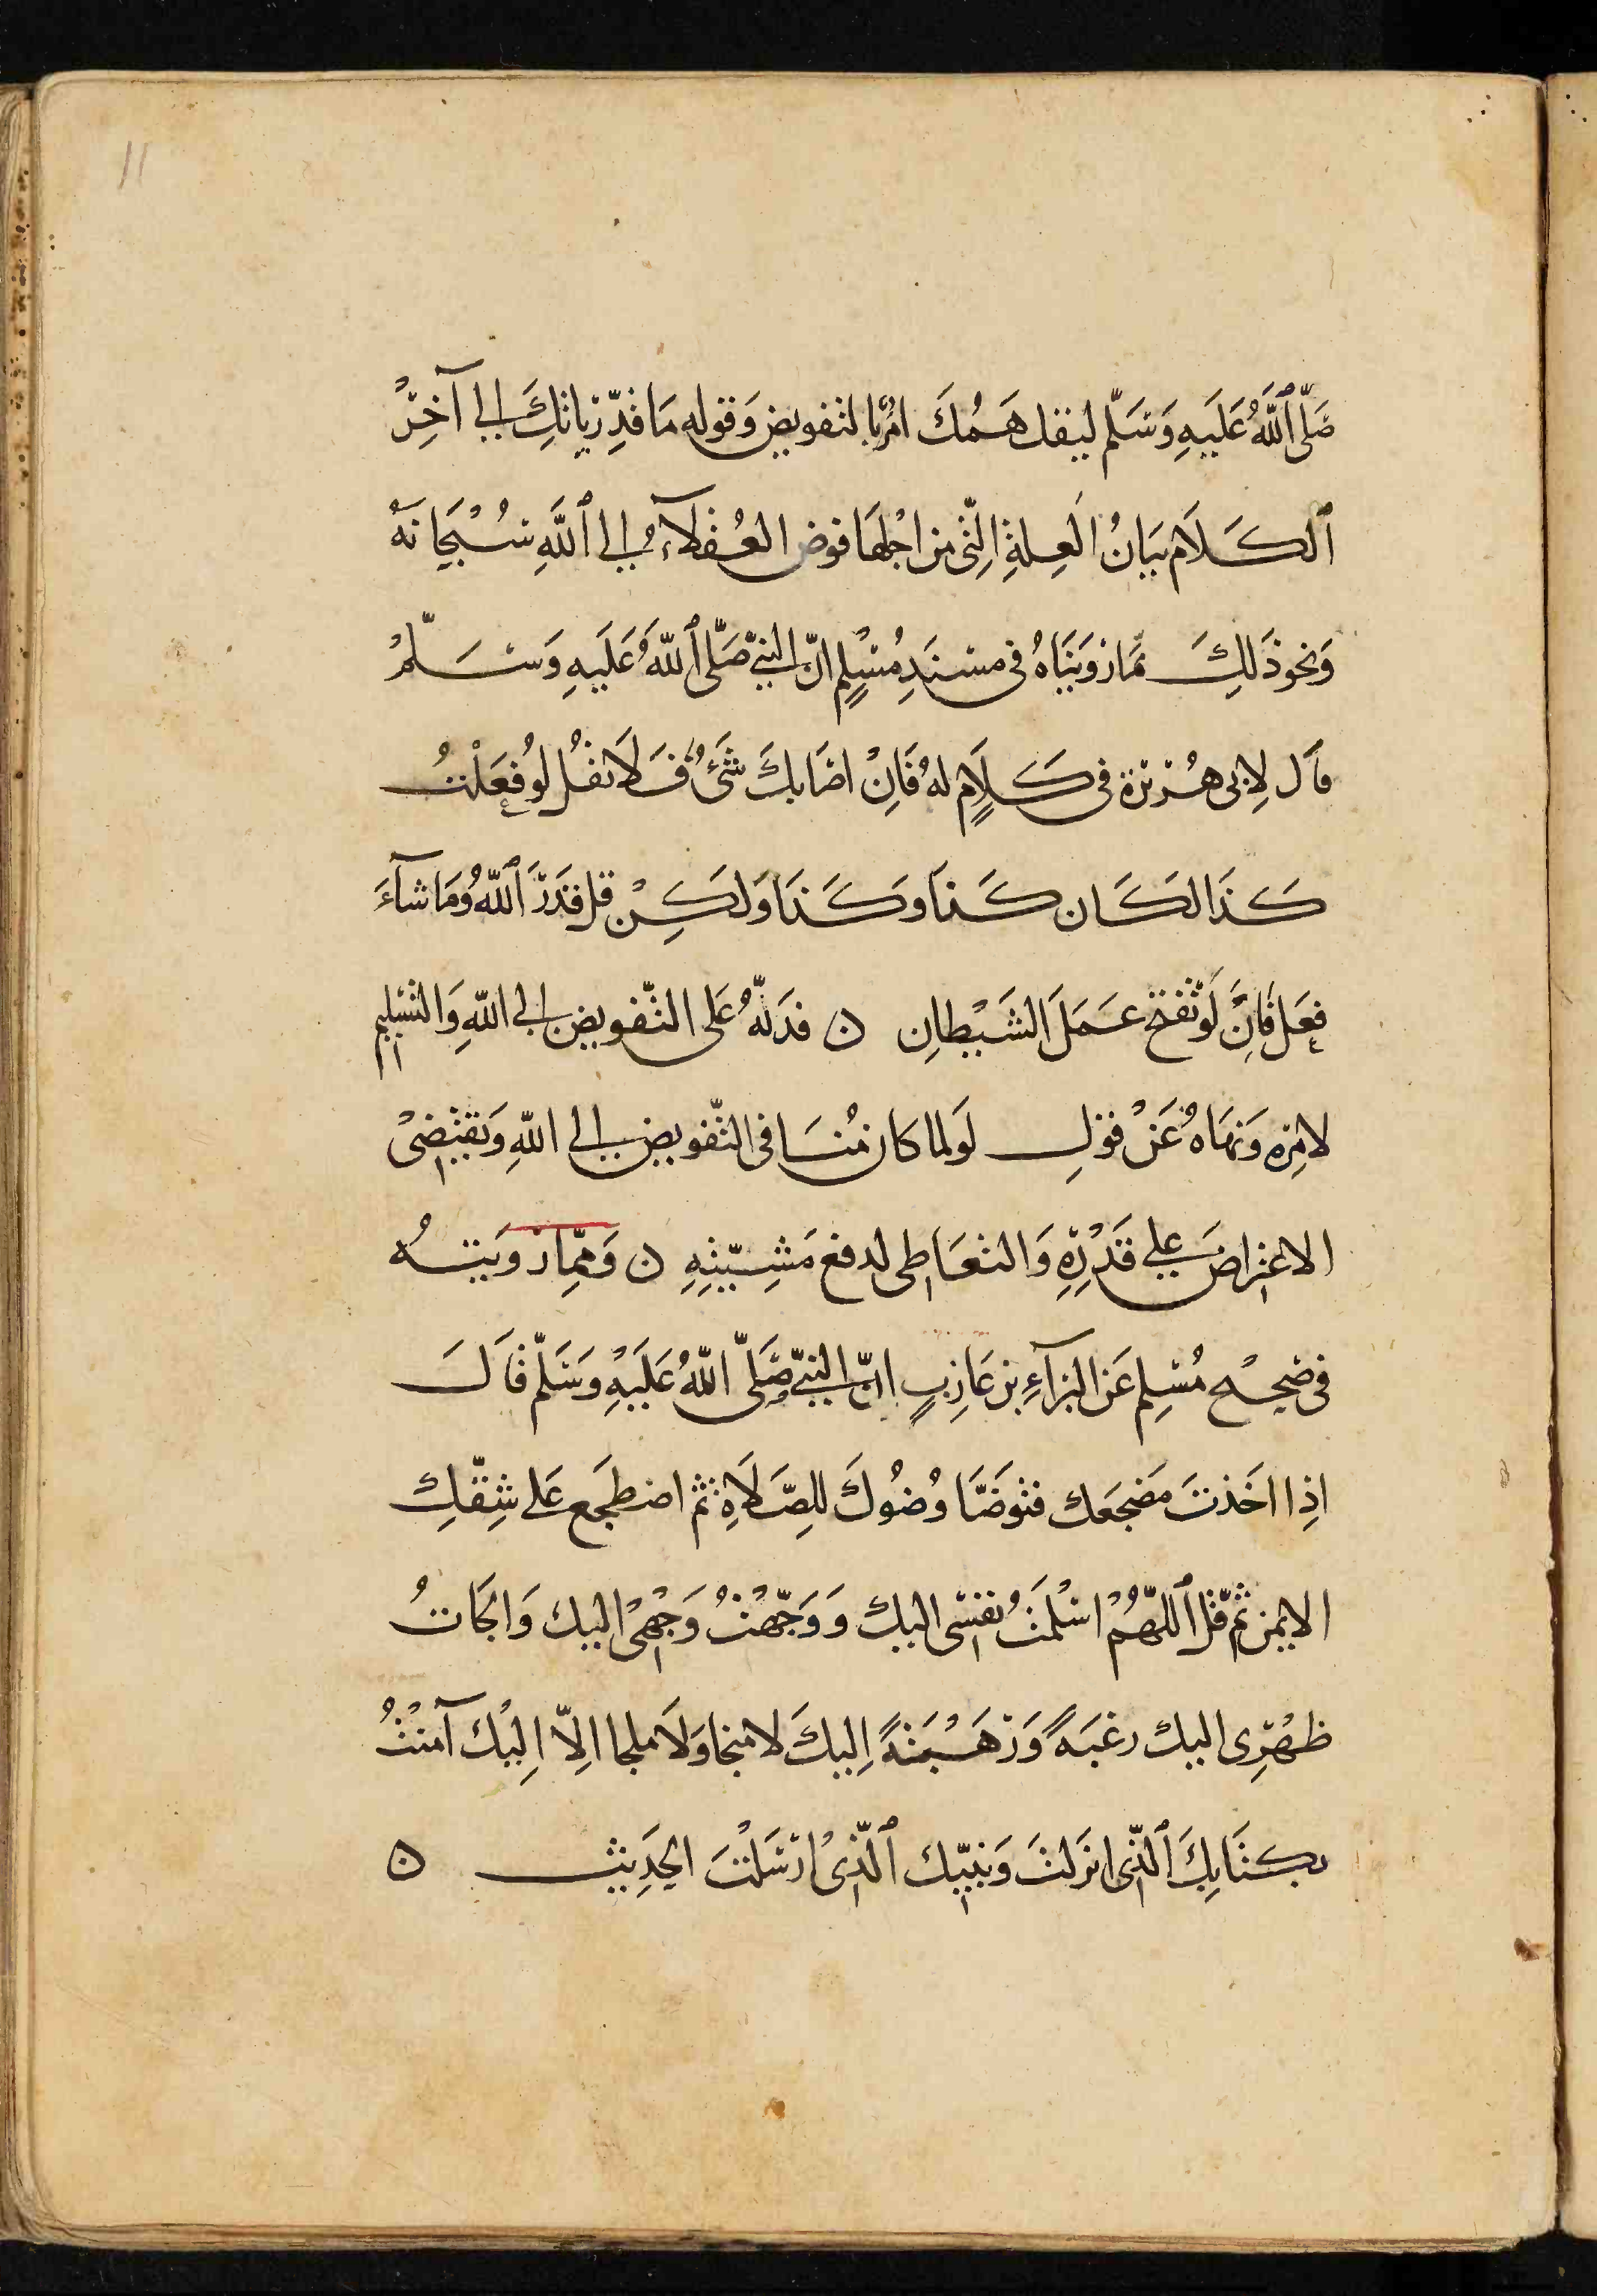 11
صَلَّى ٱللَّهُ عَلَيهِ وَسَلّم ليقل هَمُكَ امْرٌ بالتفويض وَقوله مَا قُدِّر يَاتِكَ الى آخِرْ
ٱلكَلَام بَيَانُ العِلةِ الّتى من اجْلهَا فوض العُقلآءُ الى ٱللَّهِ سُبْحَانَهُ
وَنحو ذَلِكَ ممّا رَوَيْنَاهُ فى مسنَدِ مُسْلِمٍ انّ النبىّ صَلَّى ٱللَّهُ عَلَيهِ وَسَلّمْ
قَال لِابى هُرْيَرة فى كَلَامٍ لهُ فَانْ اصَابكَ شَىْءٌ فَلَا تقُل لو فعَلْتُ
كَذَا لكَان كَذَا وَكَذَا وَلكِنْ قل قَدَّرَ ٱللَّهُ وَمَا شآءَ
فعَل فَانَّ لَوْ تَفتح عَمَلَ الشَيْطانِ ن فدَلَّهُ عَلى التَّفويض الى اللهِ وَالتسْلِيم
لامْره وَنهَاهُ عَنْ قوْلِ لَو لما كان مُنَافى التَّفويض الى اللهِ وَتقتَضِىْ
الاعتراضَ على قَدَرِهِ وَالتعَاطِى لدفع مَشِيّتِهِ ن وَمِمّا رَوَيتهُ
فى صَحِيْح مُسْلِم عَن البَرآءِ بن عَازِبٍ انّ النبىّ صَلَّى اللهُ عَلَيْهِ وَسَلّم قَالَ
اذِا اخَذتَ مَضجَعَك فتوَضَّا وُضُوكَ للصَّلَاةِ ثمّ اضطجَع عَلى شِقّكِ
الايمن ثمّ قُل ٱللهُمّ اسْلمْتُ نفْسِى اليك وَوَجَّهْتُ وَجْهِىْ اليك وَالجَاتُ
ظهْرِى اليك رغبَةً وَرَهْبَةً اِليكَ لا منجا وَلَا ملجا اِلاّ اِليْكَ آمَنْتُ
بكتَابِكَ ٱلَّذى انزلتَ وَنبيّك ٱلَّذىْ ارْسَلْتَ الحَدِيث ن